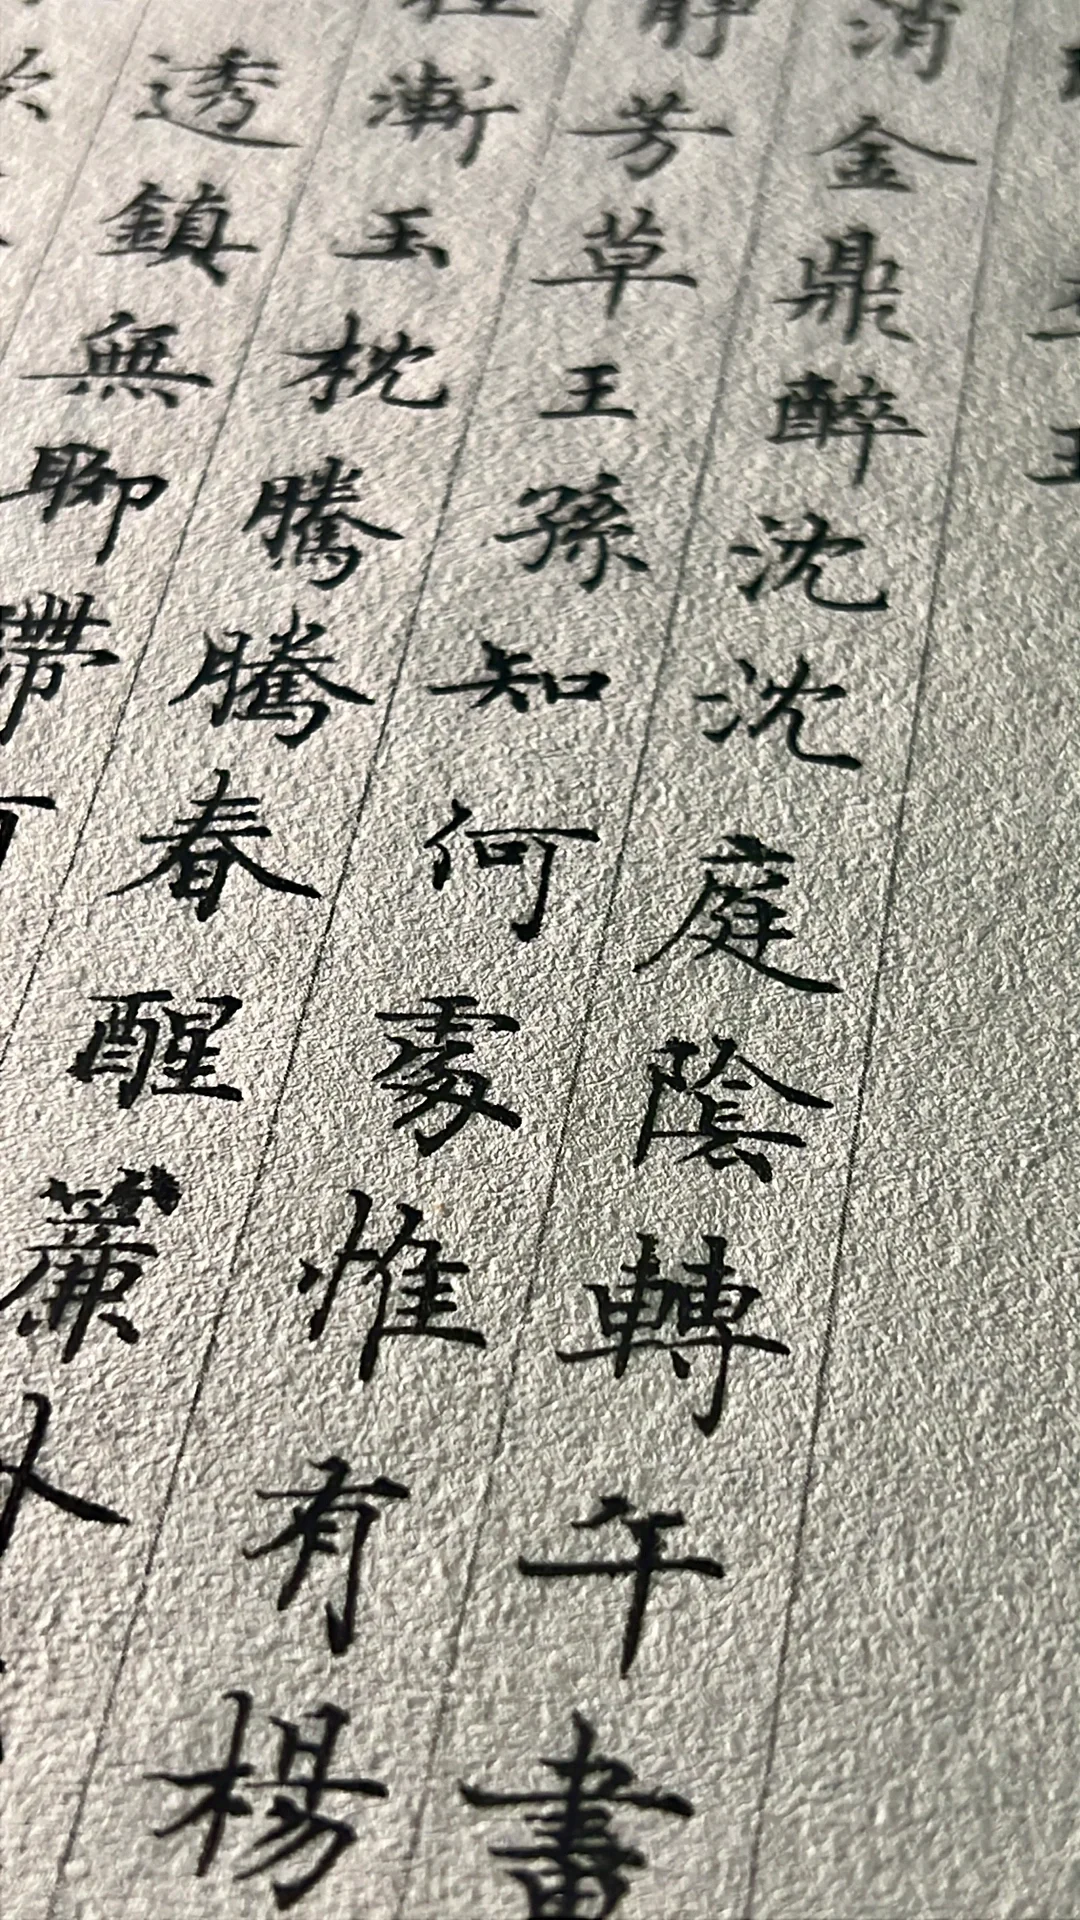 消金鼎醉沈沈庭陰轉午畫
靜芳草王孫知何處惟有楊
徑漸玉枕騰騰春醒簾外
透鎮無聊